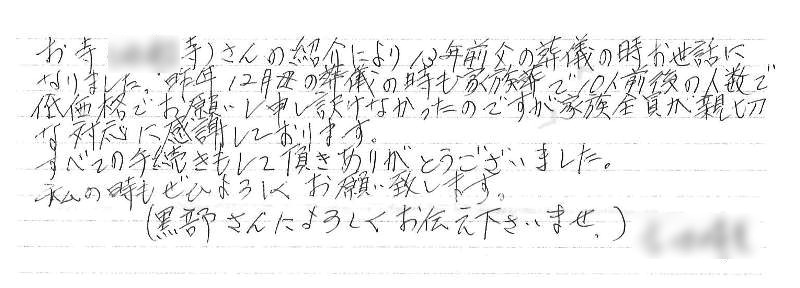 お寺(寺)さんの紹介により13年前父の葬儀の時お世話に
なりました。昨年12月母の葬儀の時も家族葬で10人前後の人数で
低価格でお願いし申し訳けなかったのですが家族全員が親切
な対応に感謝しております。
すべての手続きもして頂きありがとうございました。
私の時もぜひよろしくお願い致します。
(黒部さんによろしくお伝え下さいませ。)